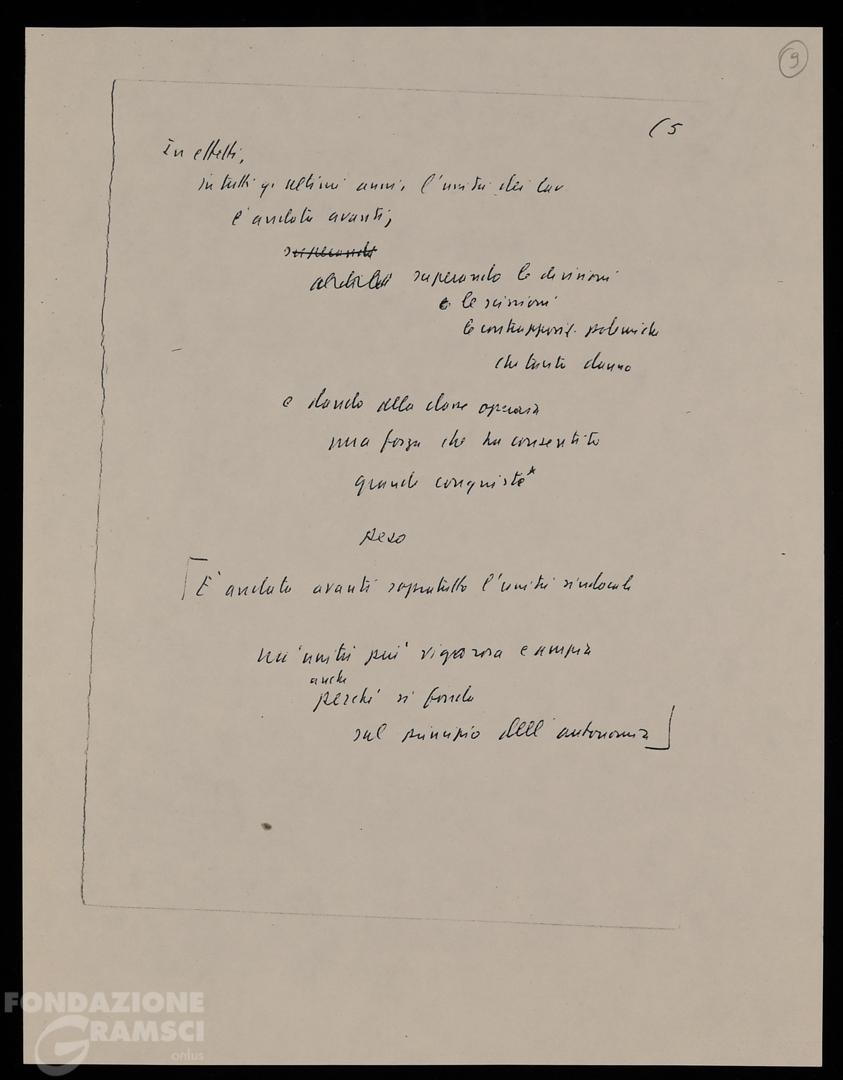 9
(5
In effetti,
in tutti q. ultimi anni, l'unità dei lav.
è andata avanti,
superando
superando le divisioni
e le scissioni
le contrapposiz. polemiche
che tanto danno
e dando alla classe operaia
una forza che ha consentito
grandi conquiste*
peso
[È andata avanti sopratutto l'unità sindacale
un'unità più vigorosa e ampia
anche
perché si fonda
sul principio dell'autonomia]
FONDAZIONE
GRAMSCI
onlus